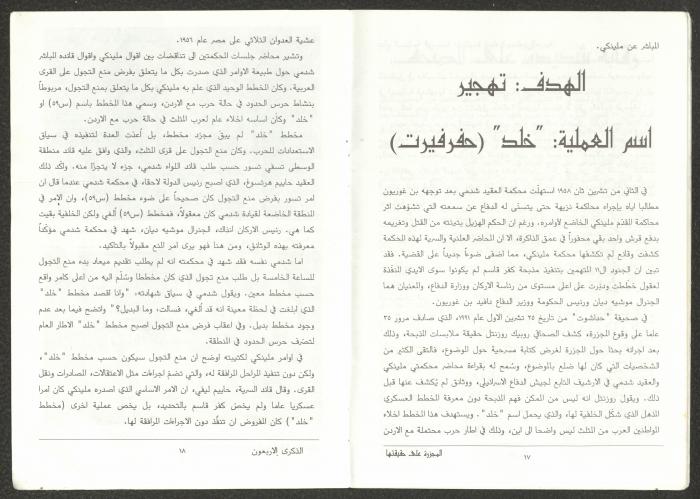 المباشر عن ملينكي.
الهدف: تهجير
اسم العملية: "خلد" (حفرفيرت)
في الثاني من تشرين ثان ١٩٥٨ استهلّت محكمة العقيد شدمي بعد توجهه بن غوريون
مطالبا اياه بإجراء محاكمة نزيهة حتى يتسنّى له الدفاع عن سمعته التي تشوّهت اثر
محاكمة المقدّم ملينكي الخاضع لأوامره. ورغم ان الحكم الهزيل بتبرئته من القتل وتغريمه
بدفع قرش واحد بقي محفوراً في عمق الذاكرة، الا ان المحاضر العلنية والسرية لهذه المحكمة
كشفت وقائع لم تكشفها محكمة ملينكي، مما اضفى ضوءاً جديداً على القضية. فقد
تبين ان الجنود الـ١١ المتهمين بتنفيذ مذبحة كفر قاسم لم يكونوا سوى الايدي المنفّذة
لعقول خطّطت ودبّرت على اعلى مستوى من رئاسة الاركان ووزارة الدفاع، والمعنيان هما
الجنرال موشيه ديان ورئيس الحكومة ووزير الدفاع دافيد بن غوريون.
في صحيفة "حداشوت" من تاريخ ٢٥ تشرين الاول عام ١٩٩١، الذي صادف مرور ٣٥
عاما على وقوع المجزرة، كشف الصحافي روبيك روزنتل حقيقة ملابسات المذبحة، وذلك
بعد اجرائه بحثا حول المجزرة لغرض كتابة مسرحية حول الموضوع، فالتقى الكثير من
الشخصيات التي كان لها ضلع بالموضوع، وسُمح له بقراءة محاضر محكمتي ملينكي
والعقيد شدمي في الارشيف التابع لجيش الدفاع الاسرائيلي، ووثائق لم يُكشف عنها قبل
ذلك. ويقول روزنتل انه ليس من الممكن فهم المذبحة دون معرفة المخطط العسكري
المذهل الذي شكّل الخلفية لها، والذي يحمل اسم "خلد". ويستهدف هذا المخطط اخلاء
المواطنين العرب من المثلث ليس واضحا الى اين، وذلك في اطار حرب محتملة مع الاردن
١٧
المجزرة على حقيقتها
عشية العدوان الثلاثي على مصر عام ١٩٥٦.
وتشير محاضر جلسات المحكمتين الى تناقضات بين اقوال ملينكي واقوال قائده المباشر
شدمي حول طبيعة الاوامر الذي صدرت بكل ما يتعلق بفرض منع التجول على القرى
العربية. وكان المخطط الوحيد الذي علم به ملينكي بكل ما يتعلق بمنع التجول، مربوطاً
بنشاط حرس الحدود في حالة حرب مع الاردن، وسمي هذا المخطط باسم (س٥٩) او
"خلد" وكان اساسه اخلاء عام لعرب المثلث في حالة حرب مع الاردن.
مخطط "خلد" لم يبق مجرّد مخطط، بل أعدّت العدة لتنفيذه في سياق
الاستعدادات للحرب. وكان منع التجول على قرى المثلث، والذي وافق عليه قائد منطقة
الوسطى تسفي تسور حسب طلب قائد اللواء شدمي، جزء لا يتجزّأ منه. واكّد ذلك
العقيد حاييم هرتسوغ، الذي اصبح رئيس الدولة لاحقا، في محكمة شدمي عندما قال ان
امر تسور بفرض منع التجول كان صحيحاً على ضوء مخطط (س٥٩)، وان الامر في
المنطقة الخاضعة لقيادة شدمي كان معقولاً، فمخطط (س٥٩) ألغي ولكن الخلفية بقيت
كما هي. رئيس الاركان انذاك، الجنرال موشيه ديان، شهد في محكمة شدمي مؤكّداً
معرفته بهذه الوثائق، ومن هنا فهو يرى امر المنع مقبولاً بالتأكيد.
اما شدمي نفسه فقد شهد في محكمته انه لم يطلب تقديم ميعاد بدء منع التجول
للساعة الخامسة بل طلب منع تجول الذي كان مخططا وسُلّم اليه من اعلى كامر واقع
حسب مخطط معين. ويقول شدمي في سياق شهادته، "وانا اقصد مخطط "خلد"
الذي ابلغت في لحظة معينة انه قد ألغي، فسالت، وما البديل؟" واتضح فيما بعد عدم
وجود مخطط بديل. وفي اعقاب فرض منع التجول اصبح مخطط "خلد" الاطار العام
لتصرّف حرس الحدود في المنطقة.
في اوامر ملينكي لكتيبته اوضح ان منع التجول سيكون حسب مخطط "خلد"،
ولكن دون تنفيذ المراحل المرافقة له، والتي تضمّ اجراءات مثل الاعتقالات، المصادرات ونقل
القرى. وقال قائد السرية، حاييم ليفي، ان الامر الاساسي الذي اصدره ملينكي كان امرا
عسكريا عاما ولم يخصّ كفر قاسم بالتحديد، بل يخص عملية اخرى (مخطط
"خلد") كان المفروض ان تنفّذ دون الاجراءات المرافقة لها.
الذكرى الاربعون
١٨